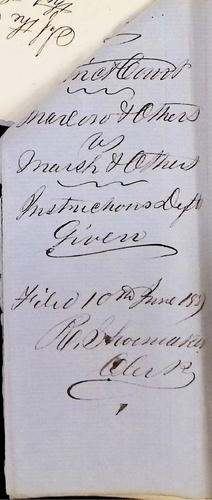 Court
Marlow & Others
vs
Marsh & Others
Instructions Deft
Given
Filed 10th June 185
R. Shoemaker
Clerk